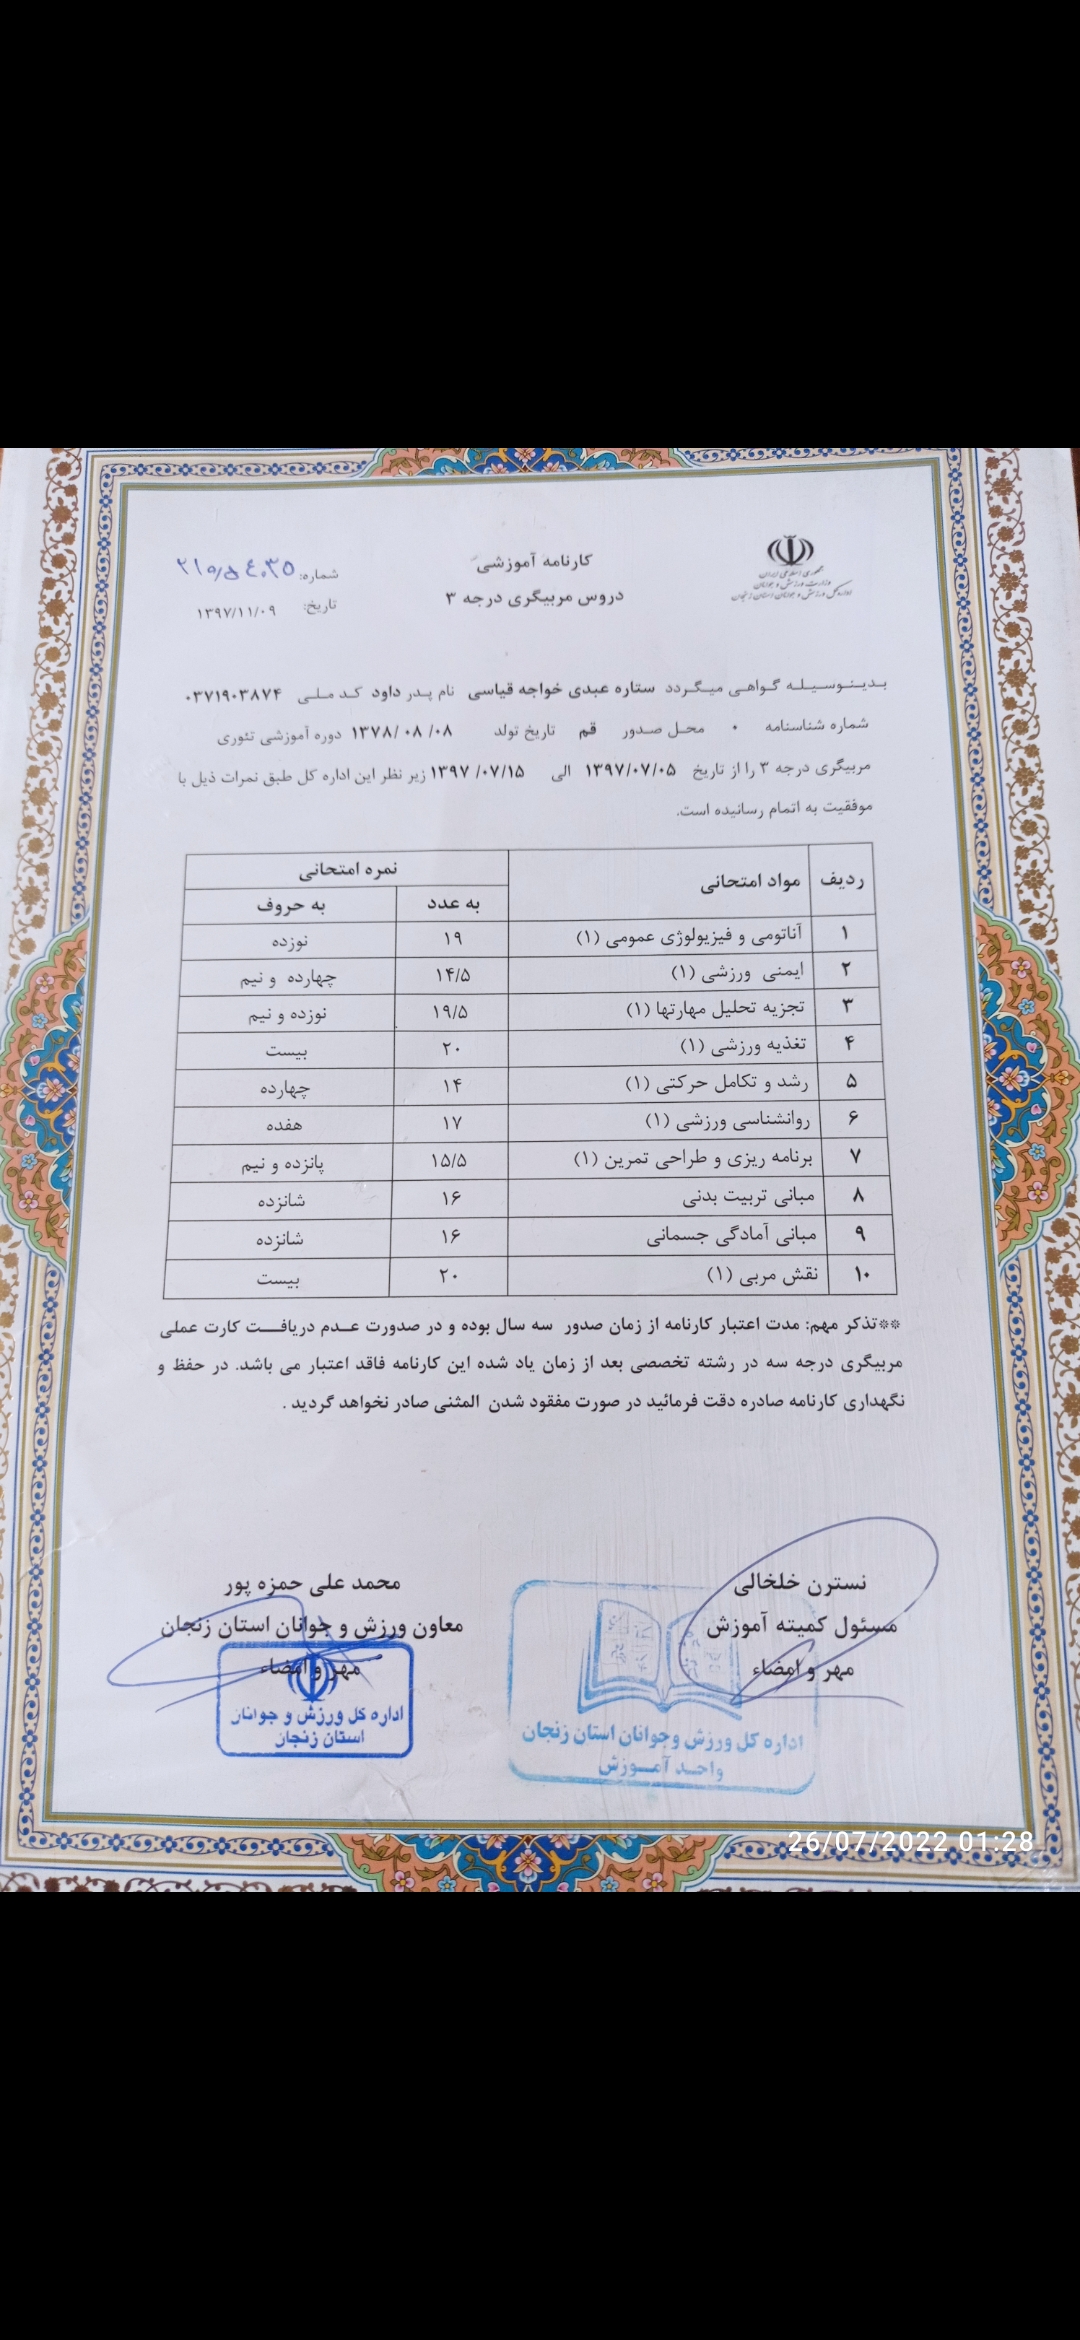 جمهوری اسلامی ایران
وزارت ورزش و جوانان
اداره کل ورزش و جوانان استان زنجان
کارنامه آموزشی
دروس مربیگری درجه ۳
شماره:
تاریخ: ۱۳۹۷/۱۱/۰۹
بدینوسیله گواهی میگردد ستاره عبدی خواجه قیاسی نام پدر داود کد ملی ۰۳۷۱۹۰۳۸۷۴
شماره شناسنامه ۰ محل صدور قم تاریخ تولد ۱۳۷۸/۰۸/۰۸ دوره آموزشی تئوری
مربیگری درجه ۳ را از تاریخ ۱۳۹۷/۰۷/۰۵ الی ۱۳۹۷/۰۷/۱۵ زیر نظر این اداره کل طبق نمرات ذیل با
موفقیت به اتمام رسانیده است.
ردیف مواد امتحانی نمره امتحانی
به عدد به حروف
۱ آناتومی و فیزیولوژی عمومی (۱) ۱۹ نوزده
۲ ایمنی ورزشی (۱) ۱۴/۵ چهارده و نیم
۳ تجزیه تحلیل مهارتها (۱) ۱۹/۵ نوزده و نیم
۴ تغذیه ورزشی (۱) ۲۰ بیست
۵ رشد و تکامل حرکتی (۱) ۱۴ چهارده
۶ روانشناسی ورزشی (۱) ۱۷ هفده
۷ برنامه ریزی و طراحی تمرین (۱) ۱۵/۵ پانزده و نیم
۸ مبانی تربیت بدنی ۱۶ شانزده
۹ مبانی آمادگی جسمانی ۱۶ شانزده
۱۰ نقش مربی (۱) ۲۰ بیست
**تذکر مهم: مدت اعتبار کارنامه از زمان صدور سه سال بوده و در صدورت عدم دریافت کارت عملی
مربیگری درجه سه در رشته تخصصی بعد از زمان یاد شده این کارنامه فاقد اعتبار می باشد. در حفظ و
نگهداری کارنامه صادره دقت فرمائید در صورت مفقود شدن المثنی صادر نخواهد گردید .
نسترن خلخالی
مسئول کمیته آموزش
مهر و امضاء
اداره کل ورزش وجوانان استان زنجان
واحد آموزش
محمد علی حمزه پور
معاون ورزش و جوانان استان زنجان
مهر و امضاء
اداره کل ورزش و جوانان
استان زنجان
26/07/2022 01:28